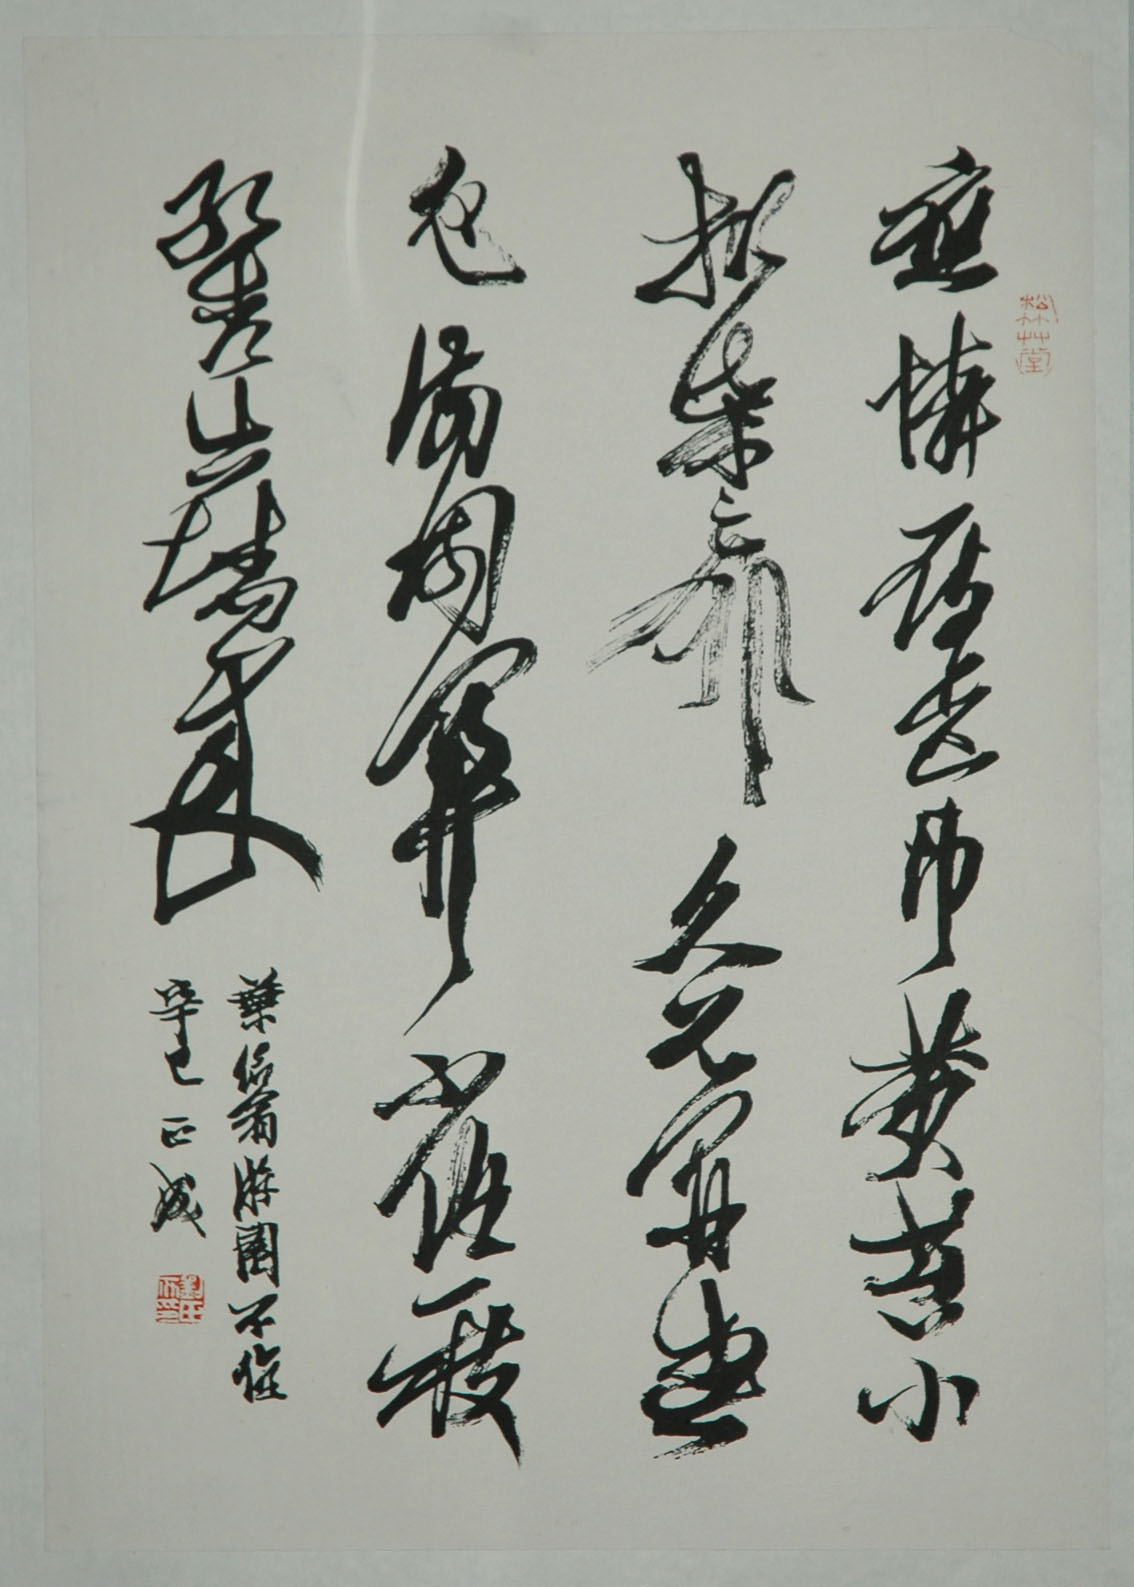 應憐屐齒印蒼苔小
扣柴扉久不開春
色滿園關不住一枝
紅杏出牆來
葉紹翁游園不值
辛巳 正成
松竹草堂